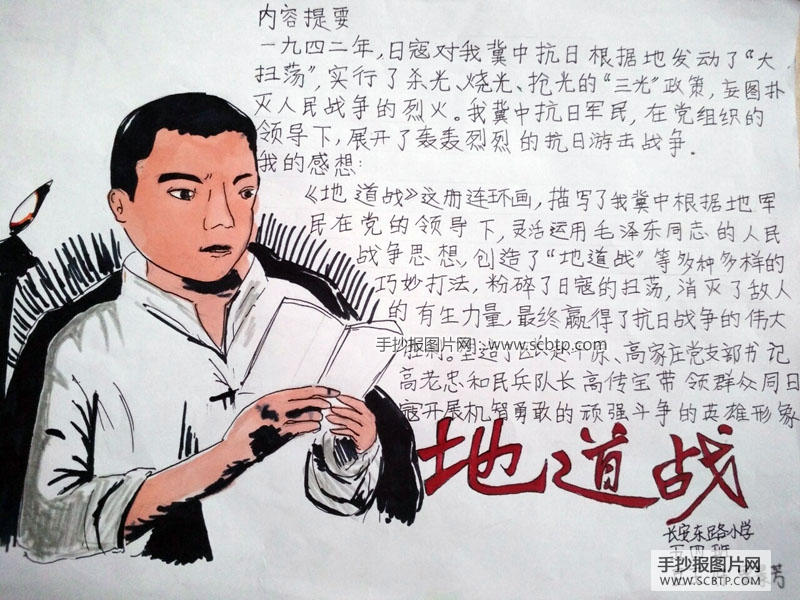 内容提要
一九四二年，日寇对我冀中抗日根据地发动了“大
扫荡”，实行了杀光、烧光、抢光的“三光”政策，妄图扑
灭人民战争的烈火。我冀中抗日军民，在党组织的
领导下，展开了轰轰烈烈的抗日游击战争.
我的感想：
《地道战》这册连环画，描写了我冀中根据地军
民在党的领导下，灵活运用毛泽东同志的人民
战争思想，创造了“地道战”等多种多样的
巧妙打法，粉碎了日寇的扫荡，消灭了敌人
的有生力量，最终赢得了抗日战争的伟大
手抄报图片网：www.scbtp.com
胜利。塑造了区长赵平原、高家庄党支部书记
高老忠和民兵队长高传宝带领群众同日
寇开展机智勇敢的顽强斗争的英雄形象
地道战
长安东路小学
五四班
手抄报图片网
WWW.SCBTP.COM
芳